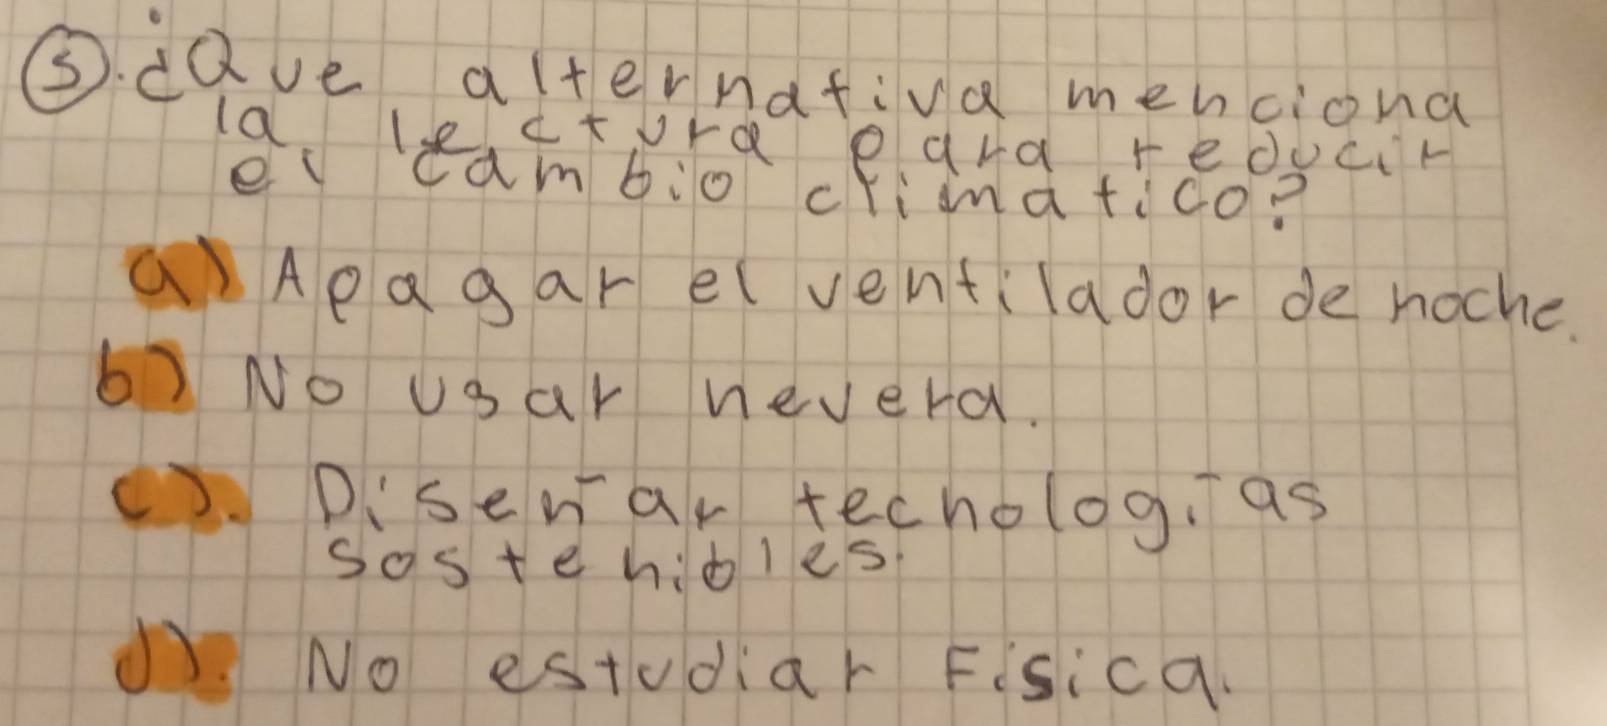 5. ¿Que alternativa menciona
la lectura para reducir
el cambio climatico?
a) Apagar el ventilador de noche.
b) No usar nevera.
c). Diseñar tecnologías
sostenibles.
d). No estudiar Fisica.